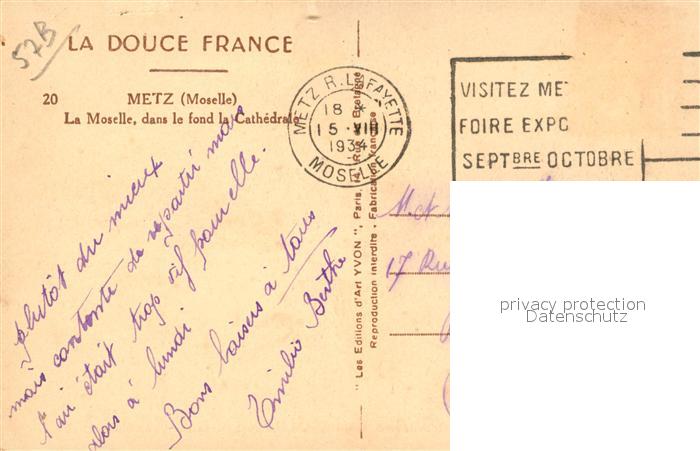 57B
LA DOUCE FRANCE
20 METZ (Moselle)
La Moselle, dans le fond la Cathédrale
METZ R. LAFAYETTE
18 *
15 · VIII
1934
MOSELLE
VISITEZ MET
FOIRE EXPO
SEPTBRE OCTOBRE
plutôt du mieux
mais contente de repartir mais
l'air était trop vif pour elle.
alors à lundi
Bons baisers à tous
Berthe
"Les Editions d'Art YVON", Paris, Rue de Bretagne
Reproduction interdite - Fabrication française
M. et
17 Rue
privacy protection
Datenschutz